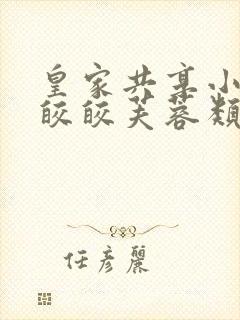 皇家共享小
皎皎芙蓉類
任彦麗